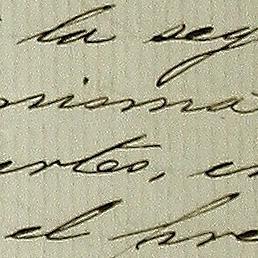 la seg
misma
ertos, en
el pre